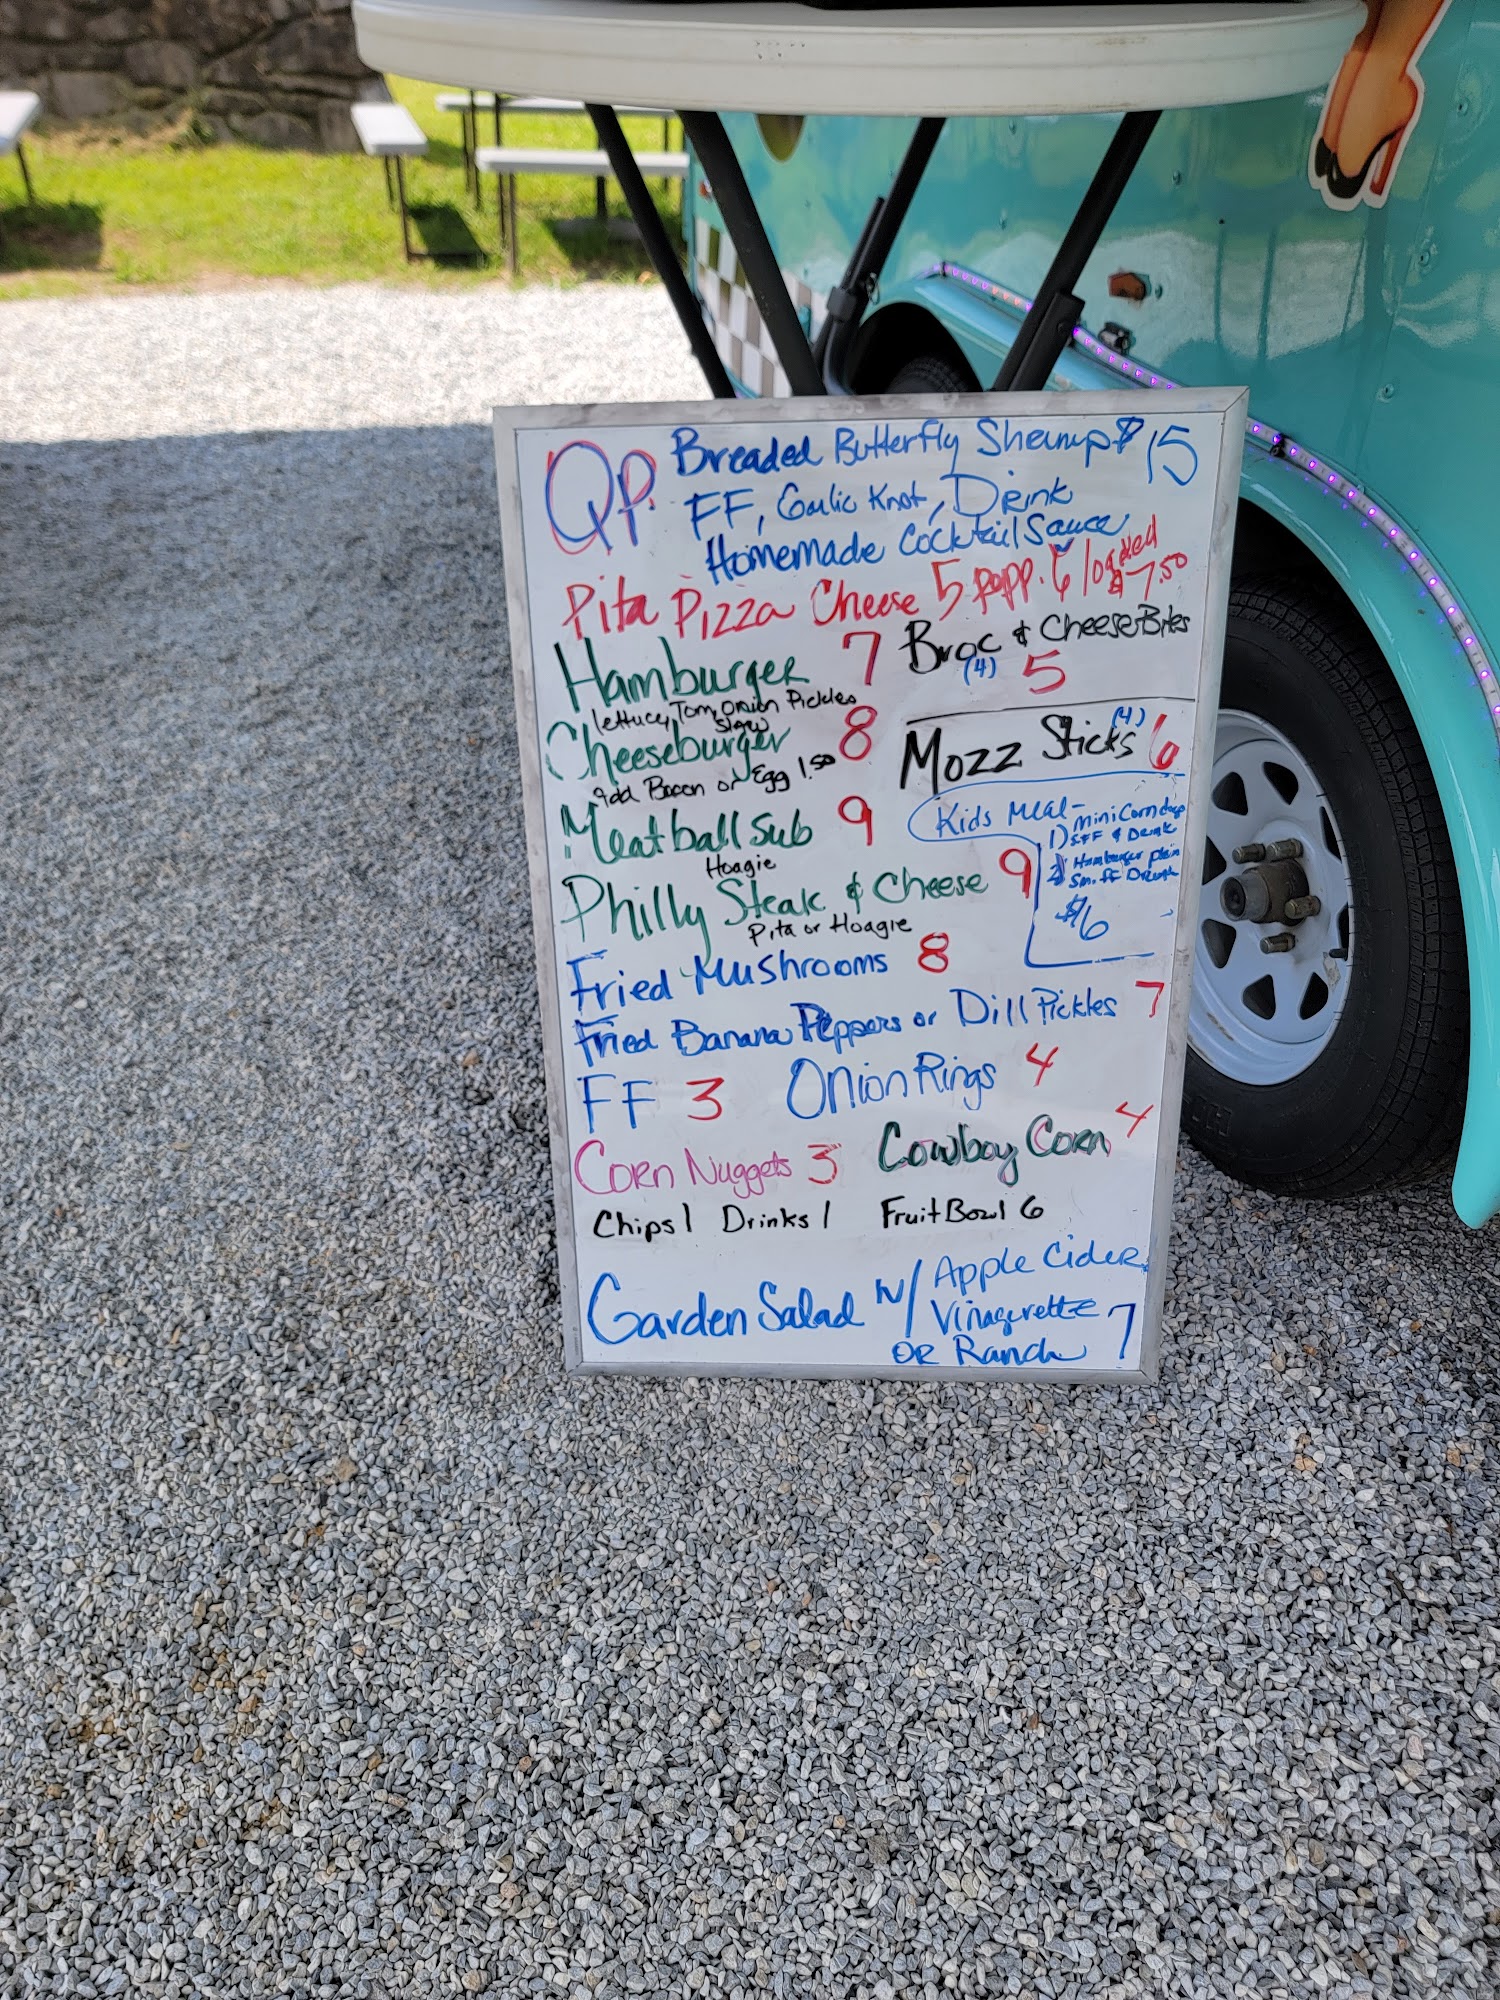 QP Breaded Butterfly Shrimp $15
FF, Garlic Knot, Drink
Homemade Cocktail Sauce
Pita Pizza Cheese 5 pepp. 6 loaded $7.50
Hamburger 7
lettuce, Tom, Onion Pickles
Slaw
Broc & Cheese Bites
(4) 5
Cheeseburger 8
Add Bacon or Egg 1.50
Mozz Sticks (4) 6
Meatball Sub 9
Hoagie
Kids Meal -
1) Mini Corndogs
FF & Drink
2) Hamburger plain
Sm. FF Drink
$6
Philly Steak & Cheese 9
Pita or Hoagie
Fried Mushrooms 8
Fried Banana Peppers or Dill Pickles 7
FF 3 Onion Rings 4
Corn Nuggets 3 Cowboy Corn 4
Chips 1 Drinks 1 Fruit Bowl 6
Garden Salad w/ Apple Cider
Vinagerette
OR Ranch 7